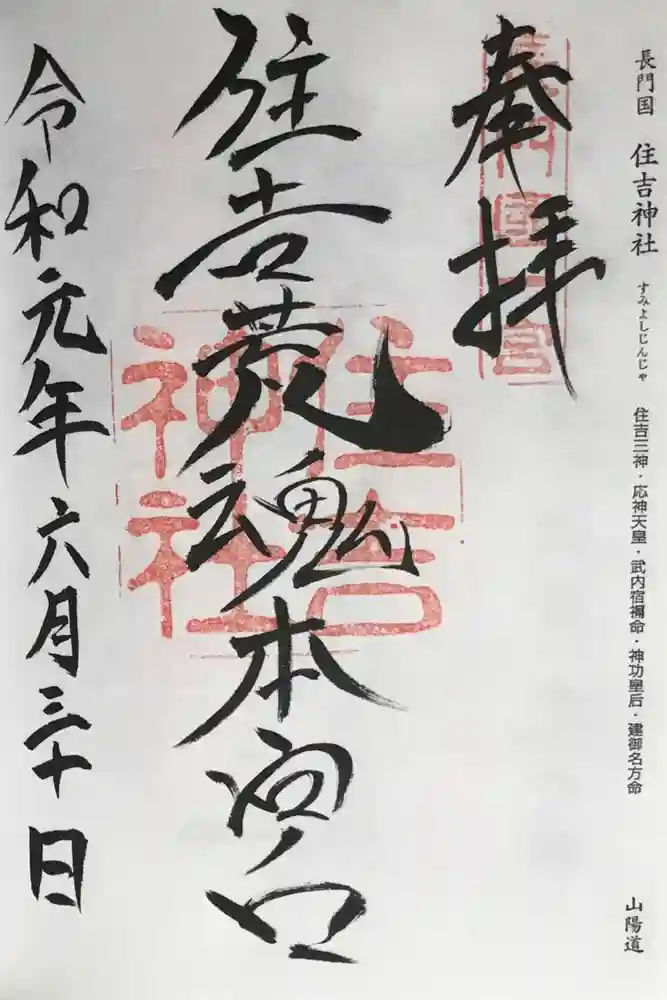 長門国 住吉神社 すみよしじんじゃ 住吉三神・応神天皇・武内宿禰命・神功皇后・建御名方命 山陽道
奉拝
長門國一宮
住吉荒魂本宮
住吉
神社
令和元年六月三十日